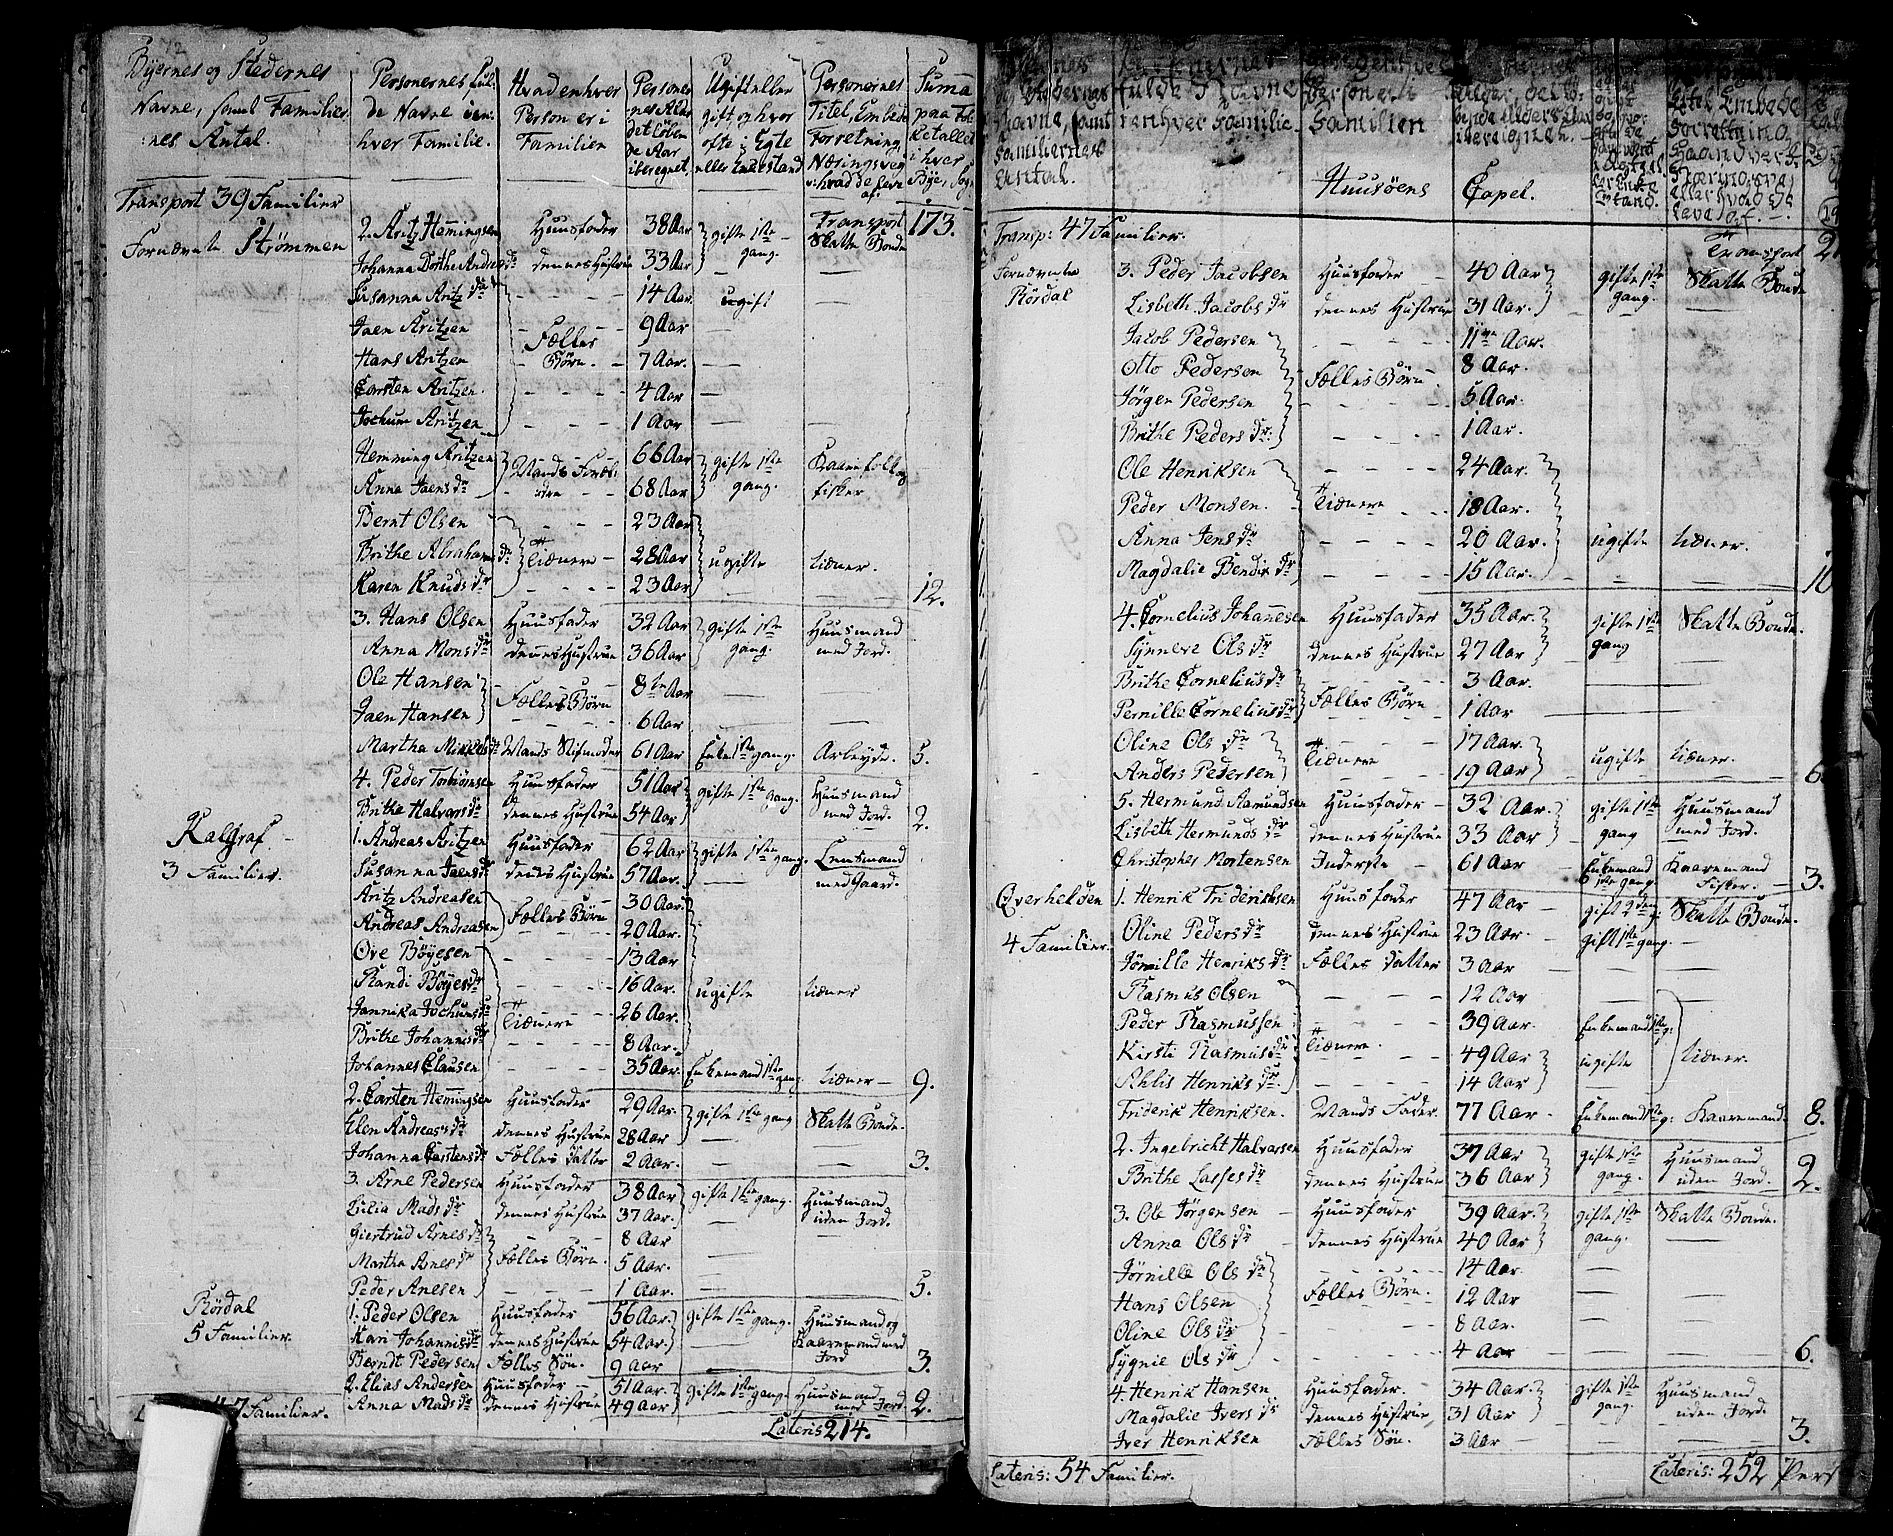 72
Byernes og Stedernes Navne, samt Familiernes Antal.
Personernes fulde Navne i enhver Familie.
Hvad enhver Person er i Familien
Personernes Alder det Løbende Aar iberegnet
Ugift eller gift, og hvor ofte i Egte eller Enkestand
Personernes Titel, Embede Forretning, Næringsvey
Summa paa Folketallet i hver Bye, Sogn
Transport 39 Familier
Transport 173.
Fornævnte Strömmen
2. Aritz Hemingsen Huusfader 38 Aar gifte 1ste gang. Skatte Bonde
Johanna Dorthe Andersdr dennes Hustrue 33 Aar
Susanna Aritzdr 14 Aar ugift
Jaen Aritzen 9 Aar
Hans Aritzen Fælles Börn 7 Aar.
Carsten Aritzen. 4 Aar
Jochum Aritzen 1 Aar
Hemming Aritzen Mands Foræl- 66 Aar gifte 1ste Kaarefolk og
Anna Jaensdr dre 68 Aar gang. fisker.
Bernt Olsen 23 Aar
Brithe Abrahamsdr Tienere 28 Aar ugifte tiener.
Karen Knudsdr 23 Aar 12.
3. Hans Olsen Huusfader 32 Aar gifte 1ste Huusmand
Anna Monsdr dennes Hustrue 36 Aar gang. med Jord.
Ole Hansen 8te Aar
Jaen Hansen Fælles Börn 6 Aar
Martha Mikkelsdr Mands Stifmoder 61 Aar Enke 1ste gang. Arbeyde. 5.
4. Peder Torbiörnsen Huusfader 51 Aar gifte 1ste gang. Huusmand
Brithe Halvarsdr dennes Hustrue 54 Aar med Jord. 2.
Kalgraf.
3 Familier.
1. Andreas Aritzen Huusfader 62 Aar gifte 1ste gang. Lensmand
Susanna Jaensdr dennes Hustrue 57 Aar. med Gaard.
Aritz Andreasen 30 Aar.
Andreas Andreasen Fælles Börn 20 Aar.
Ove Böyesen 13 Aar
Randi Böyesdr 16 Aar. ugifte tiener
Jannika Jochumsdr Tienere 26 Aar.
Brithe Johannisdr 8 Aar.
Johannes Clausen 35 Aar. Enkemand 1ste gang tiener 9.
2. Carsten Hemingsen Huusfader 29 Aar. gifte 1ste gang Skatte Bonde.
Elen Andreasdr dennes Hustrue 28 Aar
Johanna Carstensdr Fælles Datter 2 Aar. 3.
3. Arne Pedersen Huusfader 38 Aar gifte 1ste gang. Huusmand
Lilia Madsdr dennes Hustrue 37 Aar. uden Jord.
Giertrud Arnesdr 8 Aar
Martha Arnesdr Fælles Börn. 5 Aar.
Peder Arnesen 1 Aar. 5.
Rördal
5 Familier.
1. Peder Olsen Huusfader 56 Aar. gifte 1ste gang. Huusmand og
Kari Johannisdr dennes Hustrue 54 Aar. Kaaremand med Jord
Berndt Pedersen Fælles Sön. 9 Aar 3.
2. Elias Andersen Huusfader 51 Aar. gifte 1ste gang. Huusmand
Anna Madsdr dennes Hustrue 49 Aar. med Jord. 2.
47 Familier.
Lateris 214.
Huusöens Capel.
Transp: 47 Familier.
Transport
Fornævnte Rördal
3. Peder Jacobsen Huusfader 40 Aar gifte 1ste Skatte Bonde
Lisbeth Jacobsdr dennes Hustrue 31 Aar. gang.
Jacob Pedersen 11 Aar.
Otto Pedersen Fælles Börn. 8 Aar.
Jörgen Pedersen 5 Aar.
Brithe Pedersdr: 1 Aar.
Ole Henriksen 24 Aar.
Peder Monsen. Tienere 18 Aar.
Anna Jensdr 20 Aar. ugifte tiener.
Magdalie Bendixdr 15 Aar. 10
4. Cornelius Johannesen Huusfader 35 Aar. gifte 1ste Skatte Bonde.
Synneve Olsdr dennes Hustrue 27 Aar gang
Brithe Corneliusdr 3 Aar.
Pernille Corneliusdr Fælles Börn 1 Aar
Oline Olsdr 17 Aar.
Anders Pedersen Tienere 19 Aar ugifte tiener. 6.
5. Hermund Aamundsen Huusfader 32 Aar. gifte 1ste Huusmand
Lisbeth Hermundsdr dennes Hustrue 33 Aar gang med Jord.
Christopher Mortensen Inderste 61 Aar Enkemand 1ste gang. Kaaremand Fisker. 3.
Overhelden
4 Familier.
1. Henrik Frideriksen Huusfader 47 Aar gift 2den g: Skatte Bonde.
Oline Pedersdr dennes Hustrue 23 Aar. gift 1ste gang.
Jörnille Henriksdr Fælles Datter 3 Aar
Rasmus Olsen 12 Aar
Peder Rasmussen 39 Aar. Enkemand 1ste g:
Kirsti Rasmusdr Tienere. 49 Aar ugifte tiener.
Ahlis Henriksdr. 14 Aar
Friderik Henriksen. Mands Fader. 77 Aar. Enkemand 1ste g: Kaaremand. 8.
2. Ingebricht Halvarsen Huusfader 37 Aar gifte 1ste Huusmand
Brithe Lassesdr dennes Hustrue 36 Aar gang. uden Jord. 2.
3. Ole Jörgensen Huusfader 39 Aar. gifte 1ste Skatte Bonde.
Anna Olsdr dennes Hustrue 40 Aar gang.
Jörnille Olsdr 14 Aar.
Hans Olsen Fælles Börn. 12 Aar
Oline Olsdr 8 Aar.
Sygnie Olsdr 4 Aar 6.
4. Henrik Hansen Huusfader. 34 Aar. gifte 1ste Huusmand
Magdalie Iversdr dennes Hustrue 31 Aar gang. uden Jord.
Iver Henriksen Fælles Sön. 3 Aar 3.
Lateris: 54 Familier.
Lateris: 252 Pers